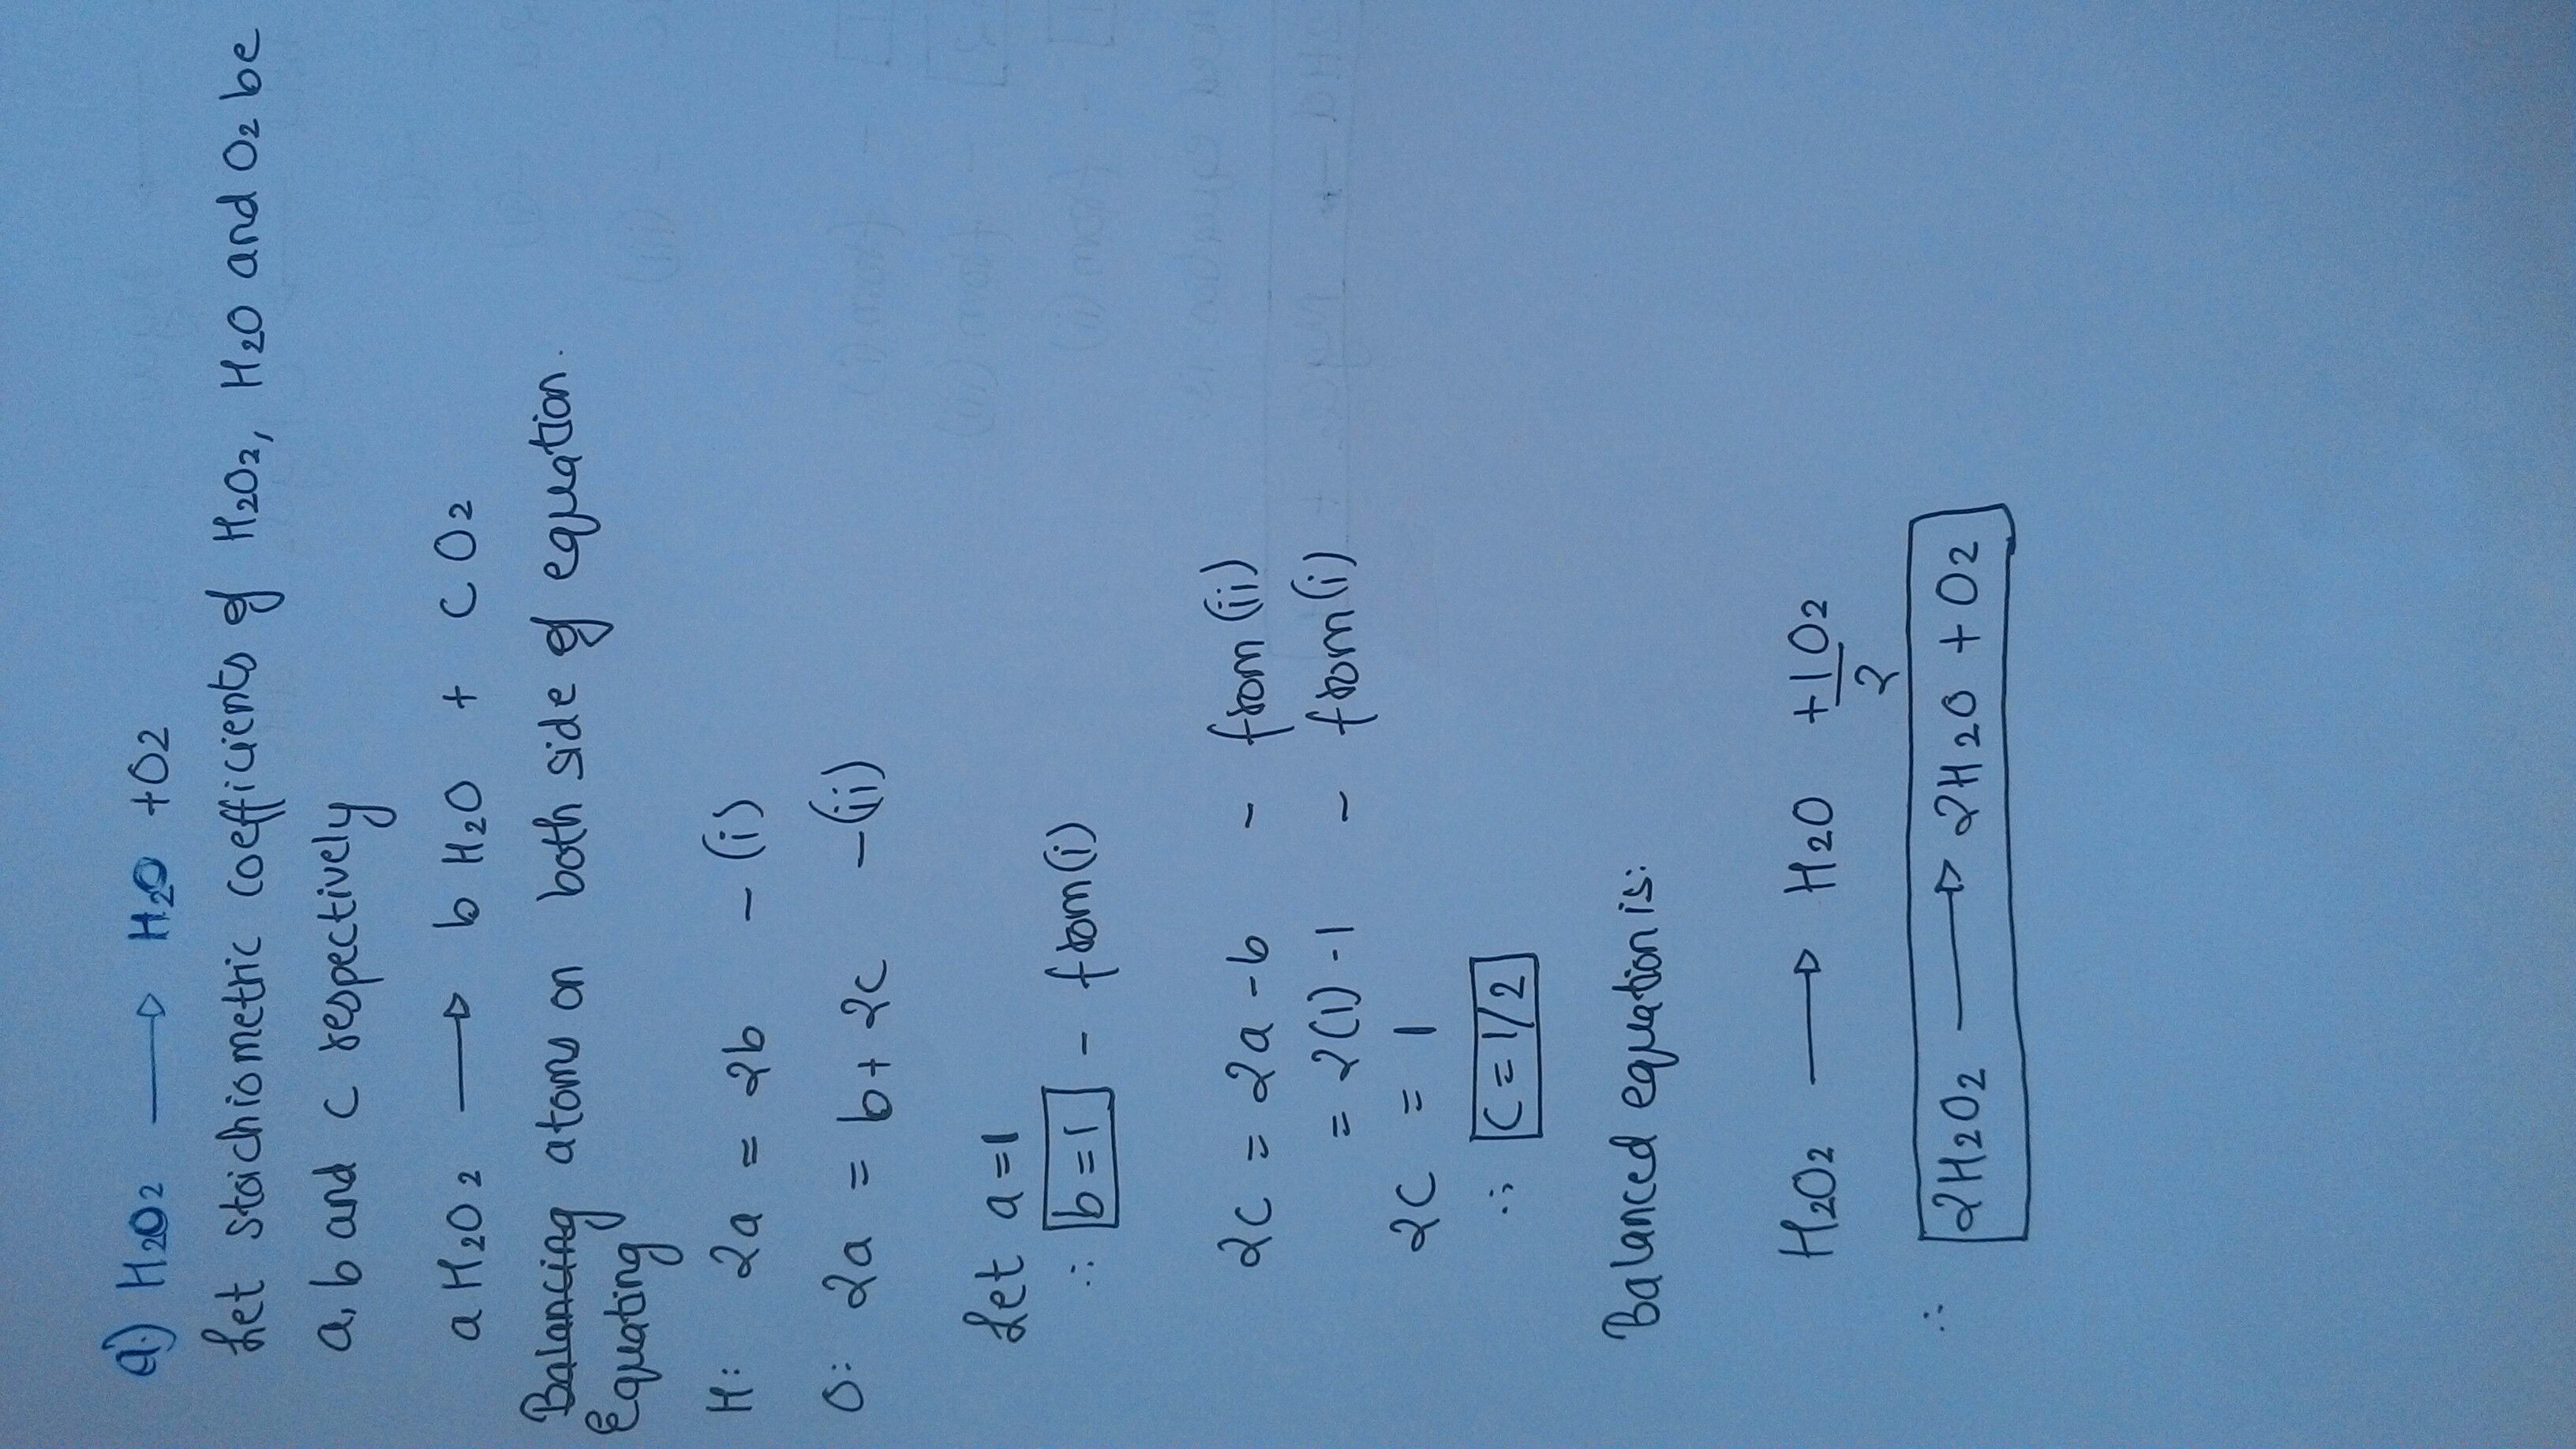 a) H2O2 → H2O + O2
Let stoichiometric coefficients of H2O2, H2O and O2 be
a, b and c respectively
a H2O2 → b H2O + c O2
Balancing atoms on both side of equation.
Equating
H: 2a = 2b - (i)
O: 2a = b + 2c - (ii)
Let a = 1
∴ b = 1 - from (i)
2c = 2a - b - from (ii)
= 2(1) - 1 - from (i)
2c = 1
∴ c = 1/2
Balanced equation is:
H2O2 → H2O + 1/2 O2
∴ 2H2O2 → 2H2O + O2